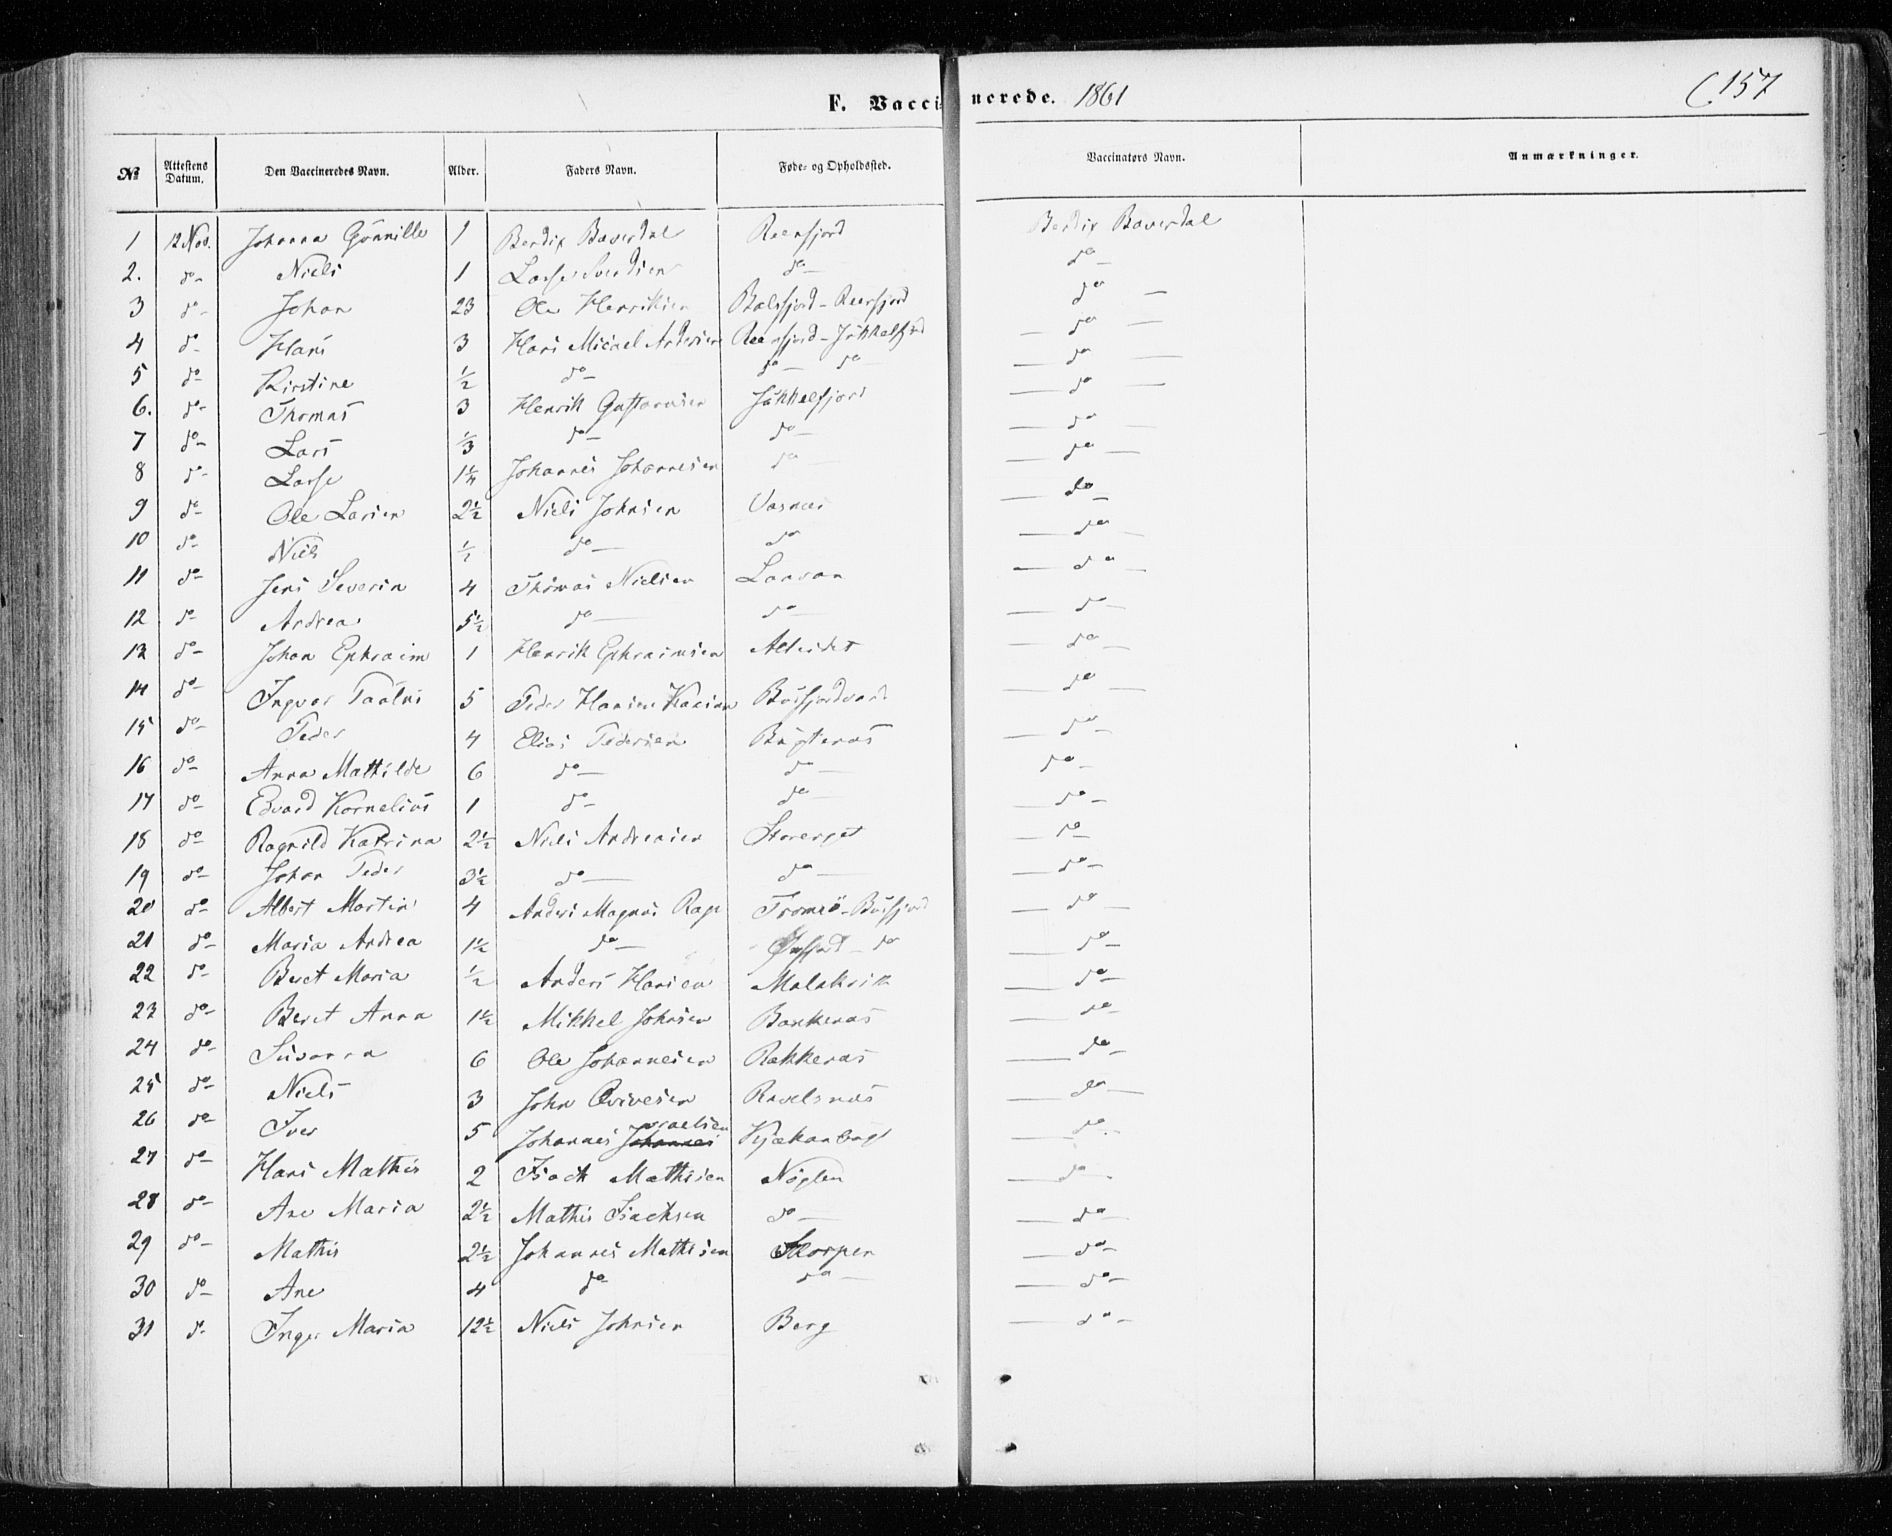 F. Vaccinerede. 1861 157
№ Attestens Datum. Den Vaccineredes Navn. Alder. Faders Navn. Føde- og Opholdssted. Vaccinators Navn. Anmærkninger.
1 12 Nov. Johanna Gunnille 1 Bendix Baverdal Reenfjord Bendix Baverdal
2. do Niels 1 Lasse do do
3 do Johan 23 Ole Henriksen Balsfjord - Reenfjord do
4 do Hans 3 Hans Micael Andersen Reenfjord - Jøkkelfjord do
5 do Kirstine ½ do do do do
6. do Thomas 3 Henrik Jøkkelfjord do
7 do Lars ⅓ do do do
8 do Lasse 1¼ Johannes Johannesen do do
9 do Ole Larsen 2½ Niels Johnsen do
10 do Niels ½ do do do
11 do Jens Severin 4 Thomas Nielsen do
12 do Andrea 5½ do do do
13 do Johan Ephraim 1 Henrik Ephraimsen Alteidet do
14 do Ingvar 5 Peder Hansen do
15 do Peder 4 Elias Pedersen do
16 do Anna Mathilde 6 do do do
17 do Edvard Kornelius 1 do do do
18 do Ragnild Katrina 2½ Niels Andreasen do
19 do Johan Peder 3½ do do do
20 do Albert Martin 4 Anders Magnus Tromsö - do
21 do Maria Andrea 1½ do do do
22 do Beret Maria ½ Anders Hansen do
23 do Beret Anna 1½ Mikkel Johnsen do
24 do Susanna 6 Ole Johannesen do
25 do Niels 3 John do
26 do Iver 5 Johannes Johannes do
27 do Hans Mathis 2 Isach Mathisen do
28 do Ane Maria 2½ Mathis Isachsen do do
29 do Mathis 2½ Johannes Mathisen Skorpen do
30 do Ane 4 do do do
31 do Inger Maria 12½ Niels Johnsen Berg do